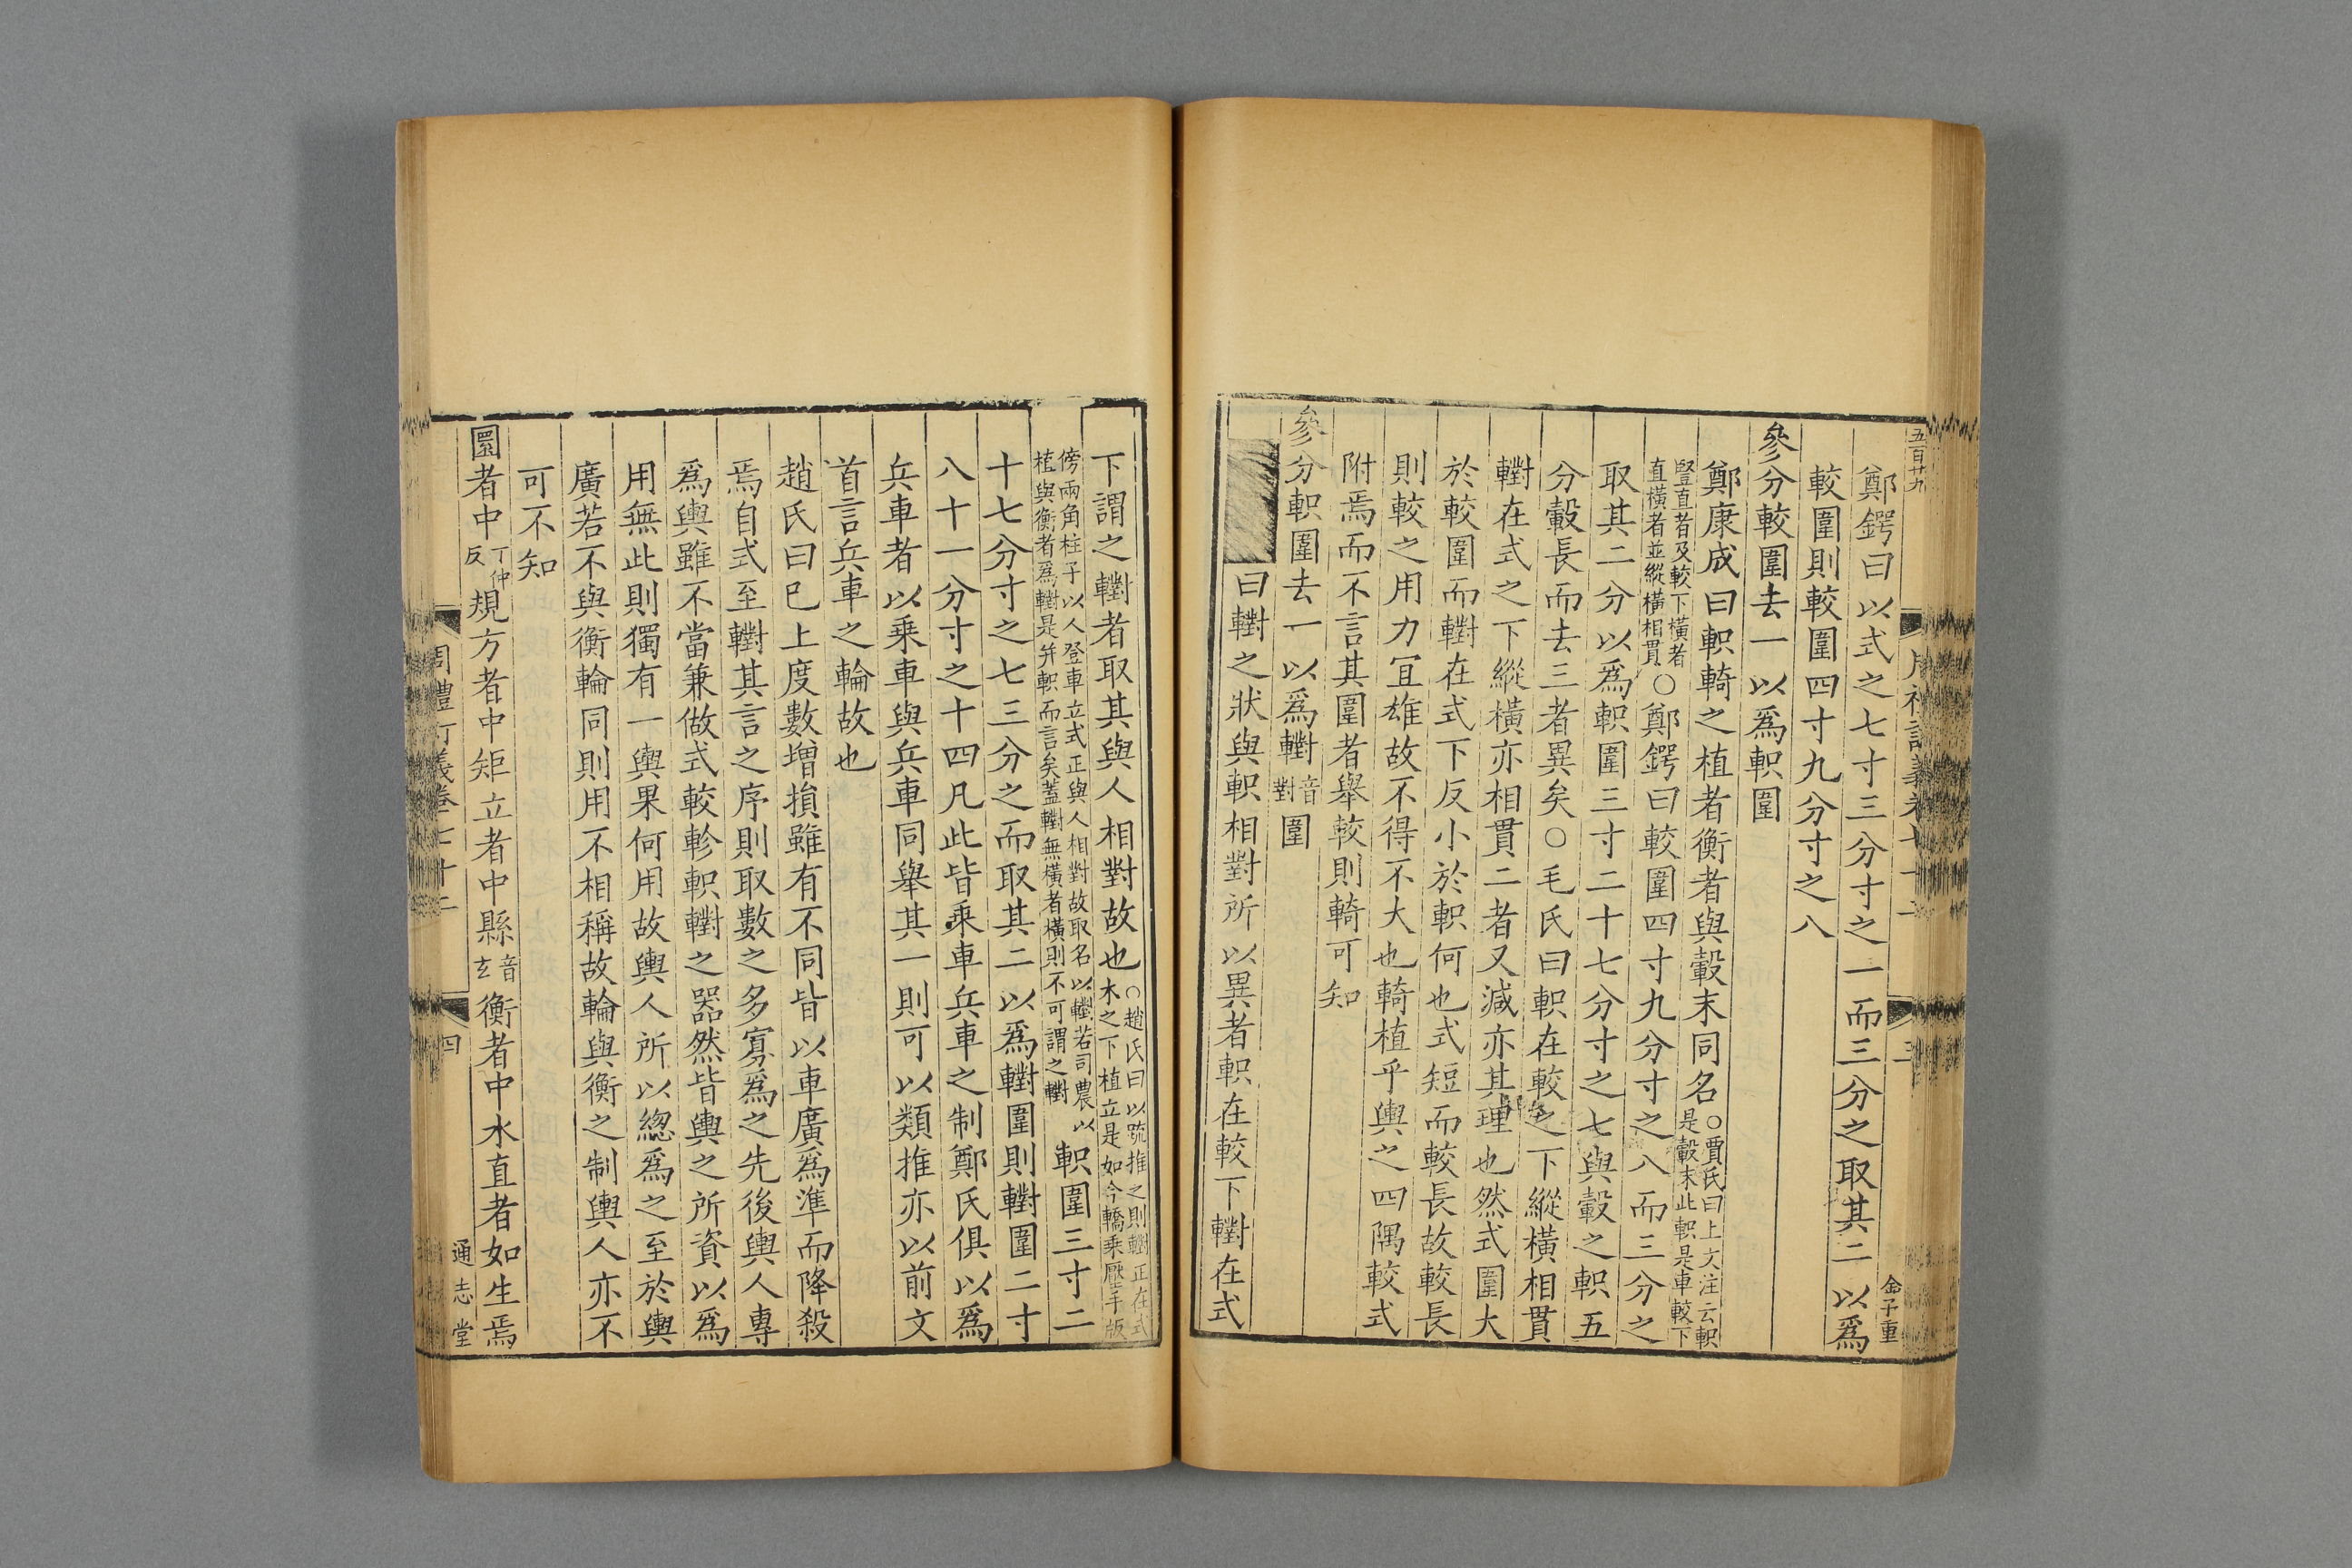 五百廿九
鄭鍔曰以式之七寸三分寸之一而三分之取其二以爲
較圍則較圍四寸九分寸之八
參分較圍去一以爲軹圍
鄭康成曰軹輢之植者衡者與轂末同名○賈氏曰上文注云軹是轂末此軹是車較下
豎直者及較下橫者直橫者並縱橫相貫○鄭鍔曰較圍四寸九分寸之八而三分之
取其二分以爲軹圍三寸二十七分寸之七與轂之軹五
分轂長而去三者異矣○毛氏曰軹在較之下縱橫相貫
轛在式之下縱橫亦相貫二者又減亦其理也然式圍大
於較圍而轛在式下反小於軹何也式短而較長故較長
則較之用力宜雄故不得不大也輢植乎輿之四隅較式
附焉而不言其圍者舉較則輢可知
參分軹圍去一以爲轛音對圍
曰轛之狀與軹相對所以異者軹在較下轛在式
金子重
下謂之轛者取其與人相對故也○趙氏曰以䟽推之則轛正在式木之下植立是如今轎乘壓手版
傍兩角柱子以人登車立式正與人相對故取名以轛若司農以植與衡者爲轛是并軹而言矣蓋轛無橫者橫則不可謂之轛軹圍三寸二
十七分寸之七三分之而取其二以爲轛圍則轛圍二寸
八十一分寸之十四凡此皆乘車兵車之制鄭氏俱以爲
兵車者以乘車與兵車同舉其一則可以類推亦以前文
首言兵車之輪故也
趙氏曰巳上度數增損雖有不同皆以車廣爲準而降殺
焉自式至轛其言之序則取數之多寡爲之先後輿人專
爲輿雖不當兼做式較軫軹轛之器然皆輿之所資以爲
用無此則獨有一輿果何用故輿人所以總爲之至於輿
廣若不與衡輪同則用不相稱故輪與衡之制輿人亦不
可不知
圜者中丁仲反規方者中矩立者中縣音玄衡者中水直者如生焉
周禮訂義卷七十二
四
通志堂